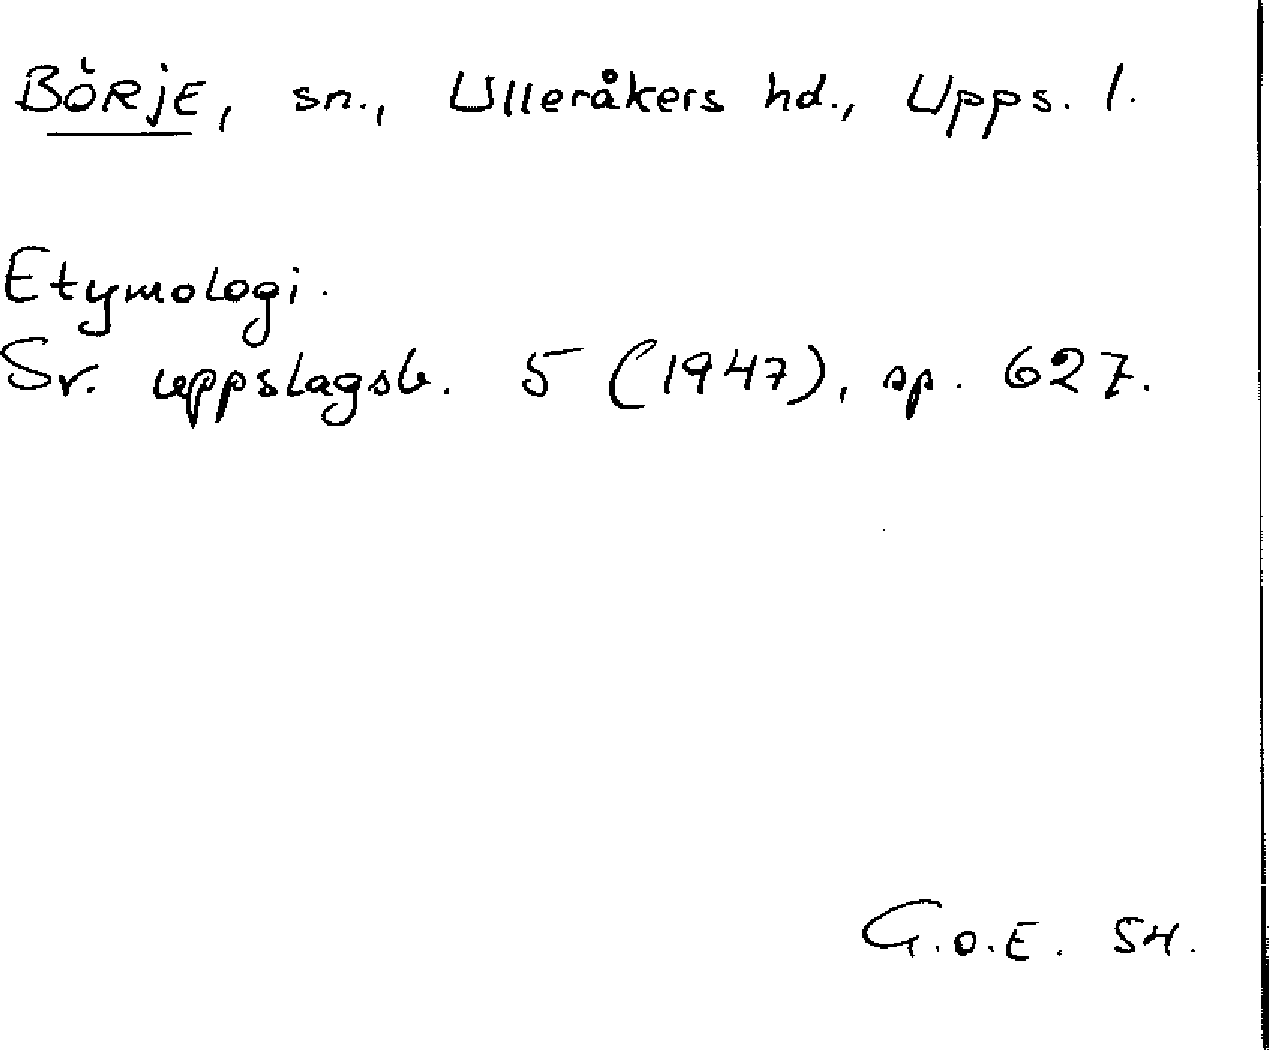 BÖRJE, sn., Ulleråkers hd., Upps. l.
Etymologi.
Sv. uppslagsb. 5 (1947), sp. 627.
G.o.E. 54.